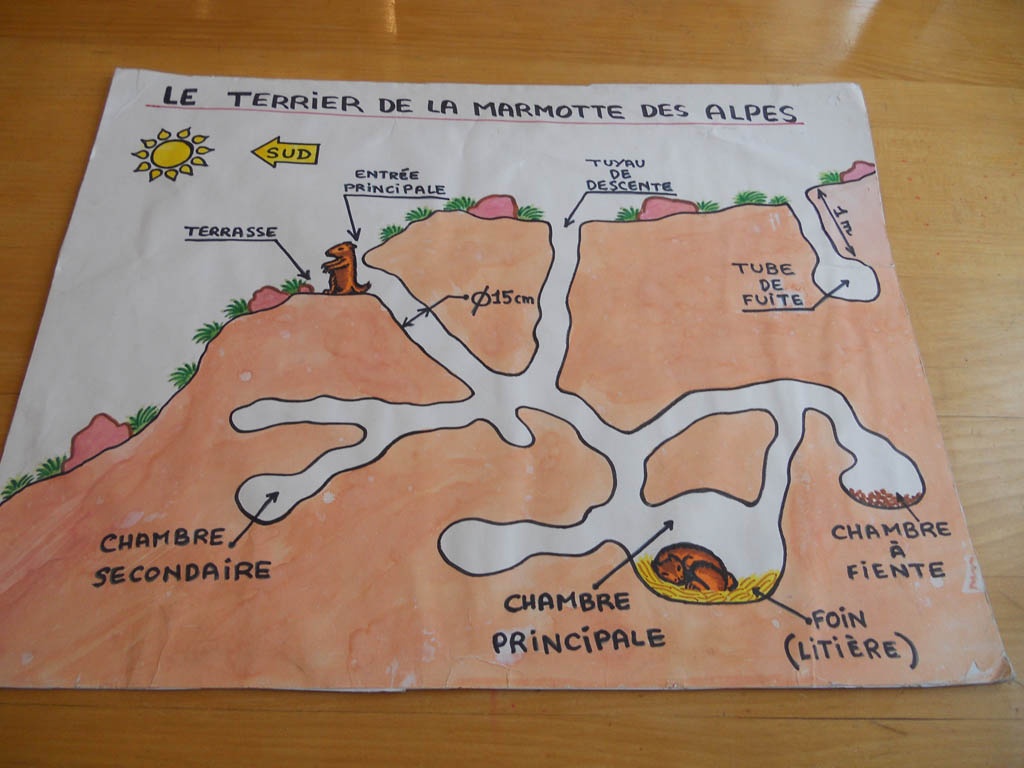 LE TERRIER DE LA MARMOTTE DES ALPES
SUD
ENTRÉE
PRINCIPALE
TUYAU
DE
DESCENTE
TERRASSE
1m
TUBE
DE
FUITE
Ø15cm
CHAMBRE
SECONDAIRE
CHAMBRE
PRINCIPALE
CHAMBRE
À
FIENTE
FOIN
(LITIÈRE)